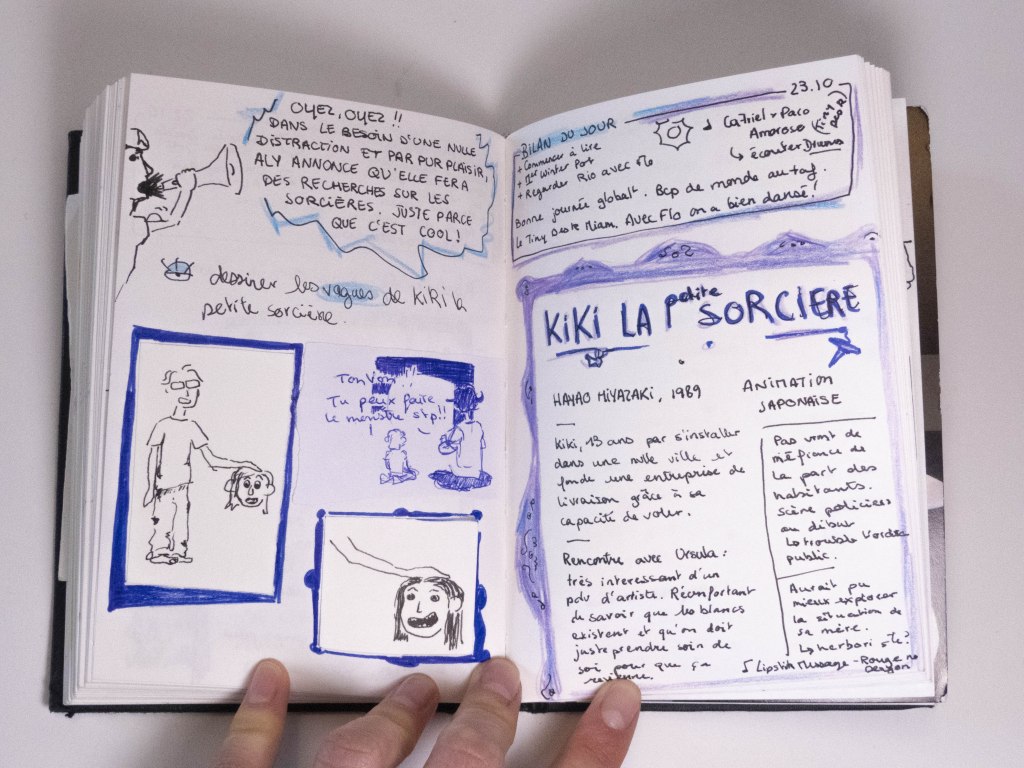 OYEZ, OYEZ !!
DANS LE BESOIN D'UNE NULLE
DISTRACTION ET PAR PUR PLAISIR,
ALY ANNONCE QU'ELLE FERA
DES RECHERCHES SUR LES
SORCIÈRES. JUSTE PARCE
QUE C'EST COOL!
dessiner les vagues de KiKi la
petite sorcière.
Tonton !!
Tu peux faire
le monstre stp!!
23.10
BILAN DU JOUR
+ Commencer à lire
+ 1er Winter Pot
+ Regarder Rio avec Flo
Ca7riel + Paco
Amoroso (Tiny
↳ écouter Drums
Bonne journée globalt. Bcp de monde au taf.
le Tiny Desk Miam. Avec Flo on a bien dansé!
KiKi LA petite SORCIERE
HAYAO MIYAZAKI, 1989
ANIMATION
JAPONAISE
Kiki, 13 ans par s'installer
dans une ville et
fonde une entreprise de
livraison grâce à sa
capacité de voler.
Rencontre avec Ursula :
très interessant d'un
pdv d'artiste. Réconfortant
de savoir que les blancs
existent et qu'on doit
juste prendre soin de
soi pour que ça
revienne.
Pas vrmt de
méfiance de
la part des
habitants.
scène policières
au début
↳ trouble l'ordre
public.
Aurait pu
mieux explorer
la situation de
sa mère.
↳ herbori ste?
Lipstick Message - Rouge no
Dengon